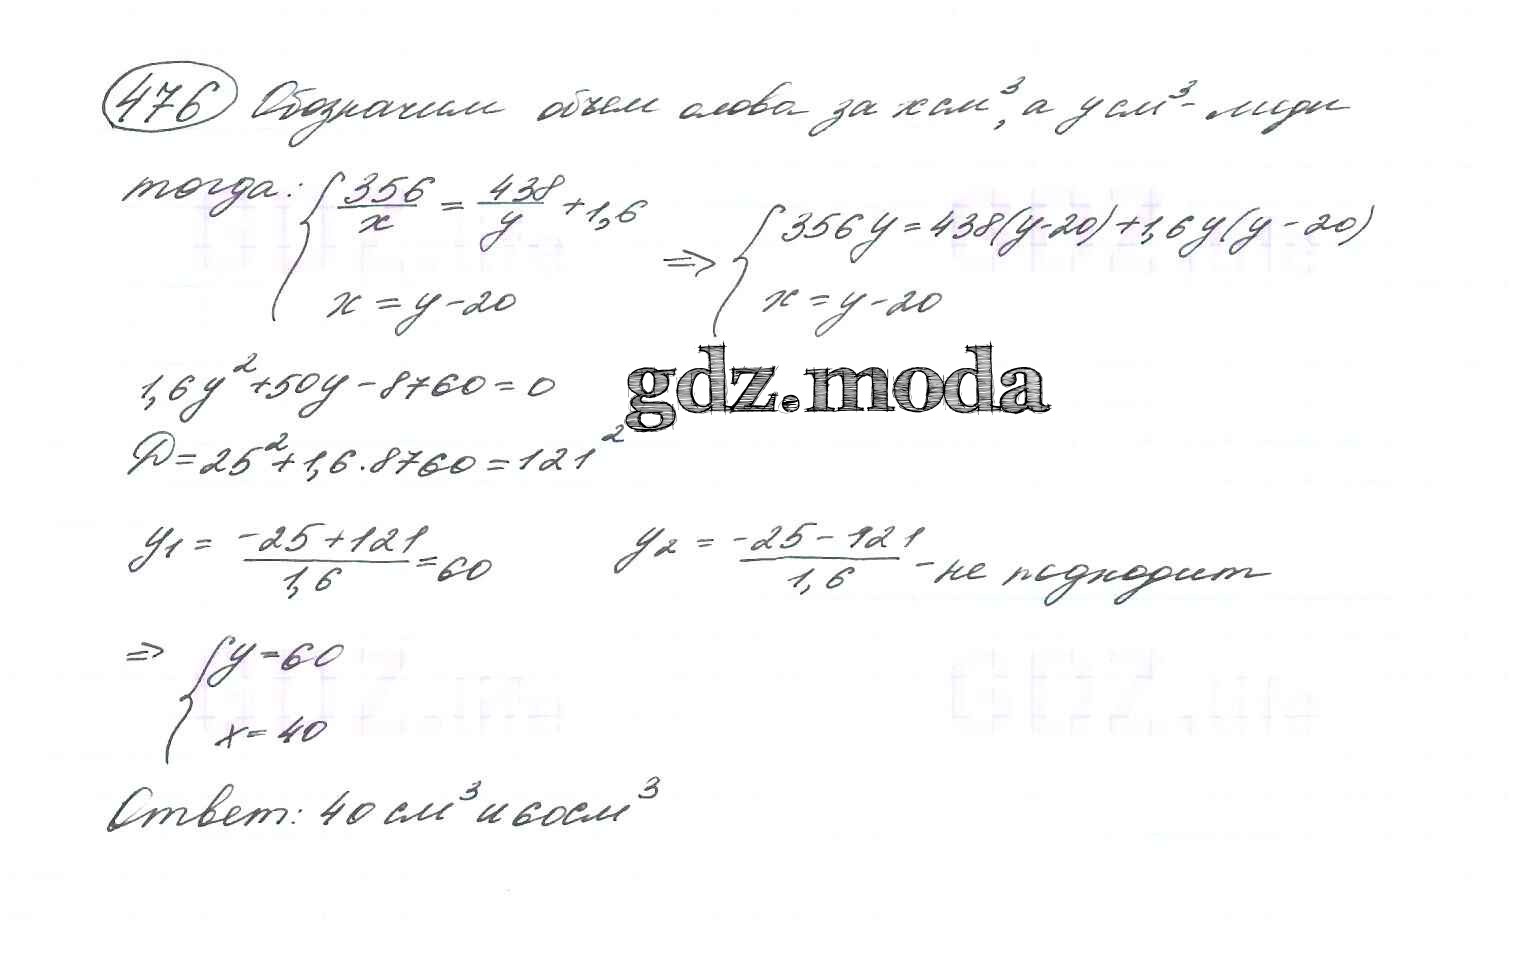 476 Обозначим объем олова за x см³, а y см³ - меди
тогда: { 356/x = 438/y + 1,6 ; x = y - 20 => { 356y = 438(y-20) + 1,6y(y-20) ; x = y - 20
1,6y² + 50y - 8760 = 0
gdz.moda
D = 25² + 1,6·8760 = 121²
y₁ = (-25+121)/1,6 = 60 y₂ = (-25-121)/1,6 - не подходит
=> { y = 60
x = 40
Ответ: 40 см³ и 60 см³